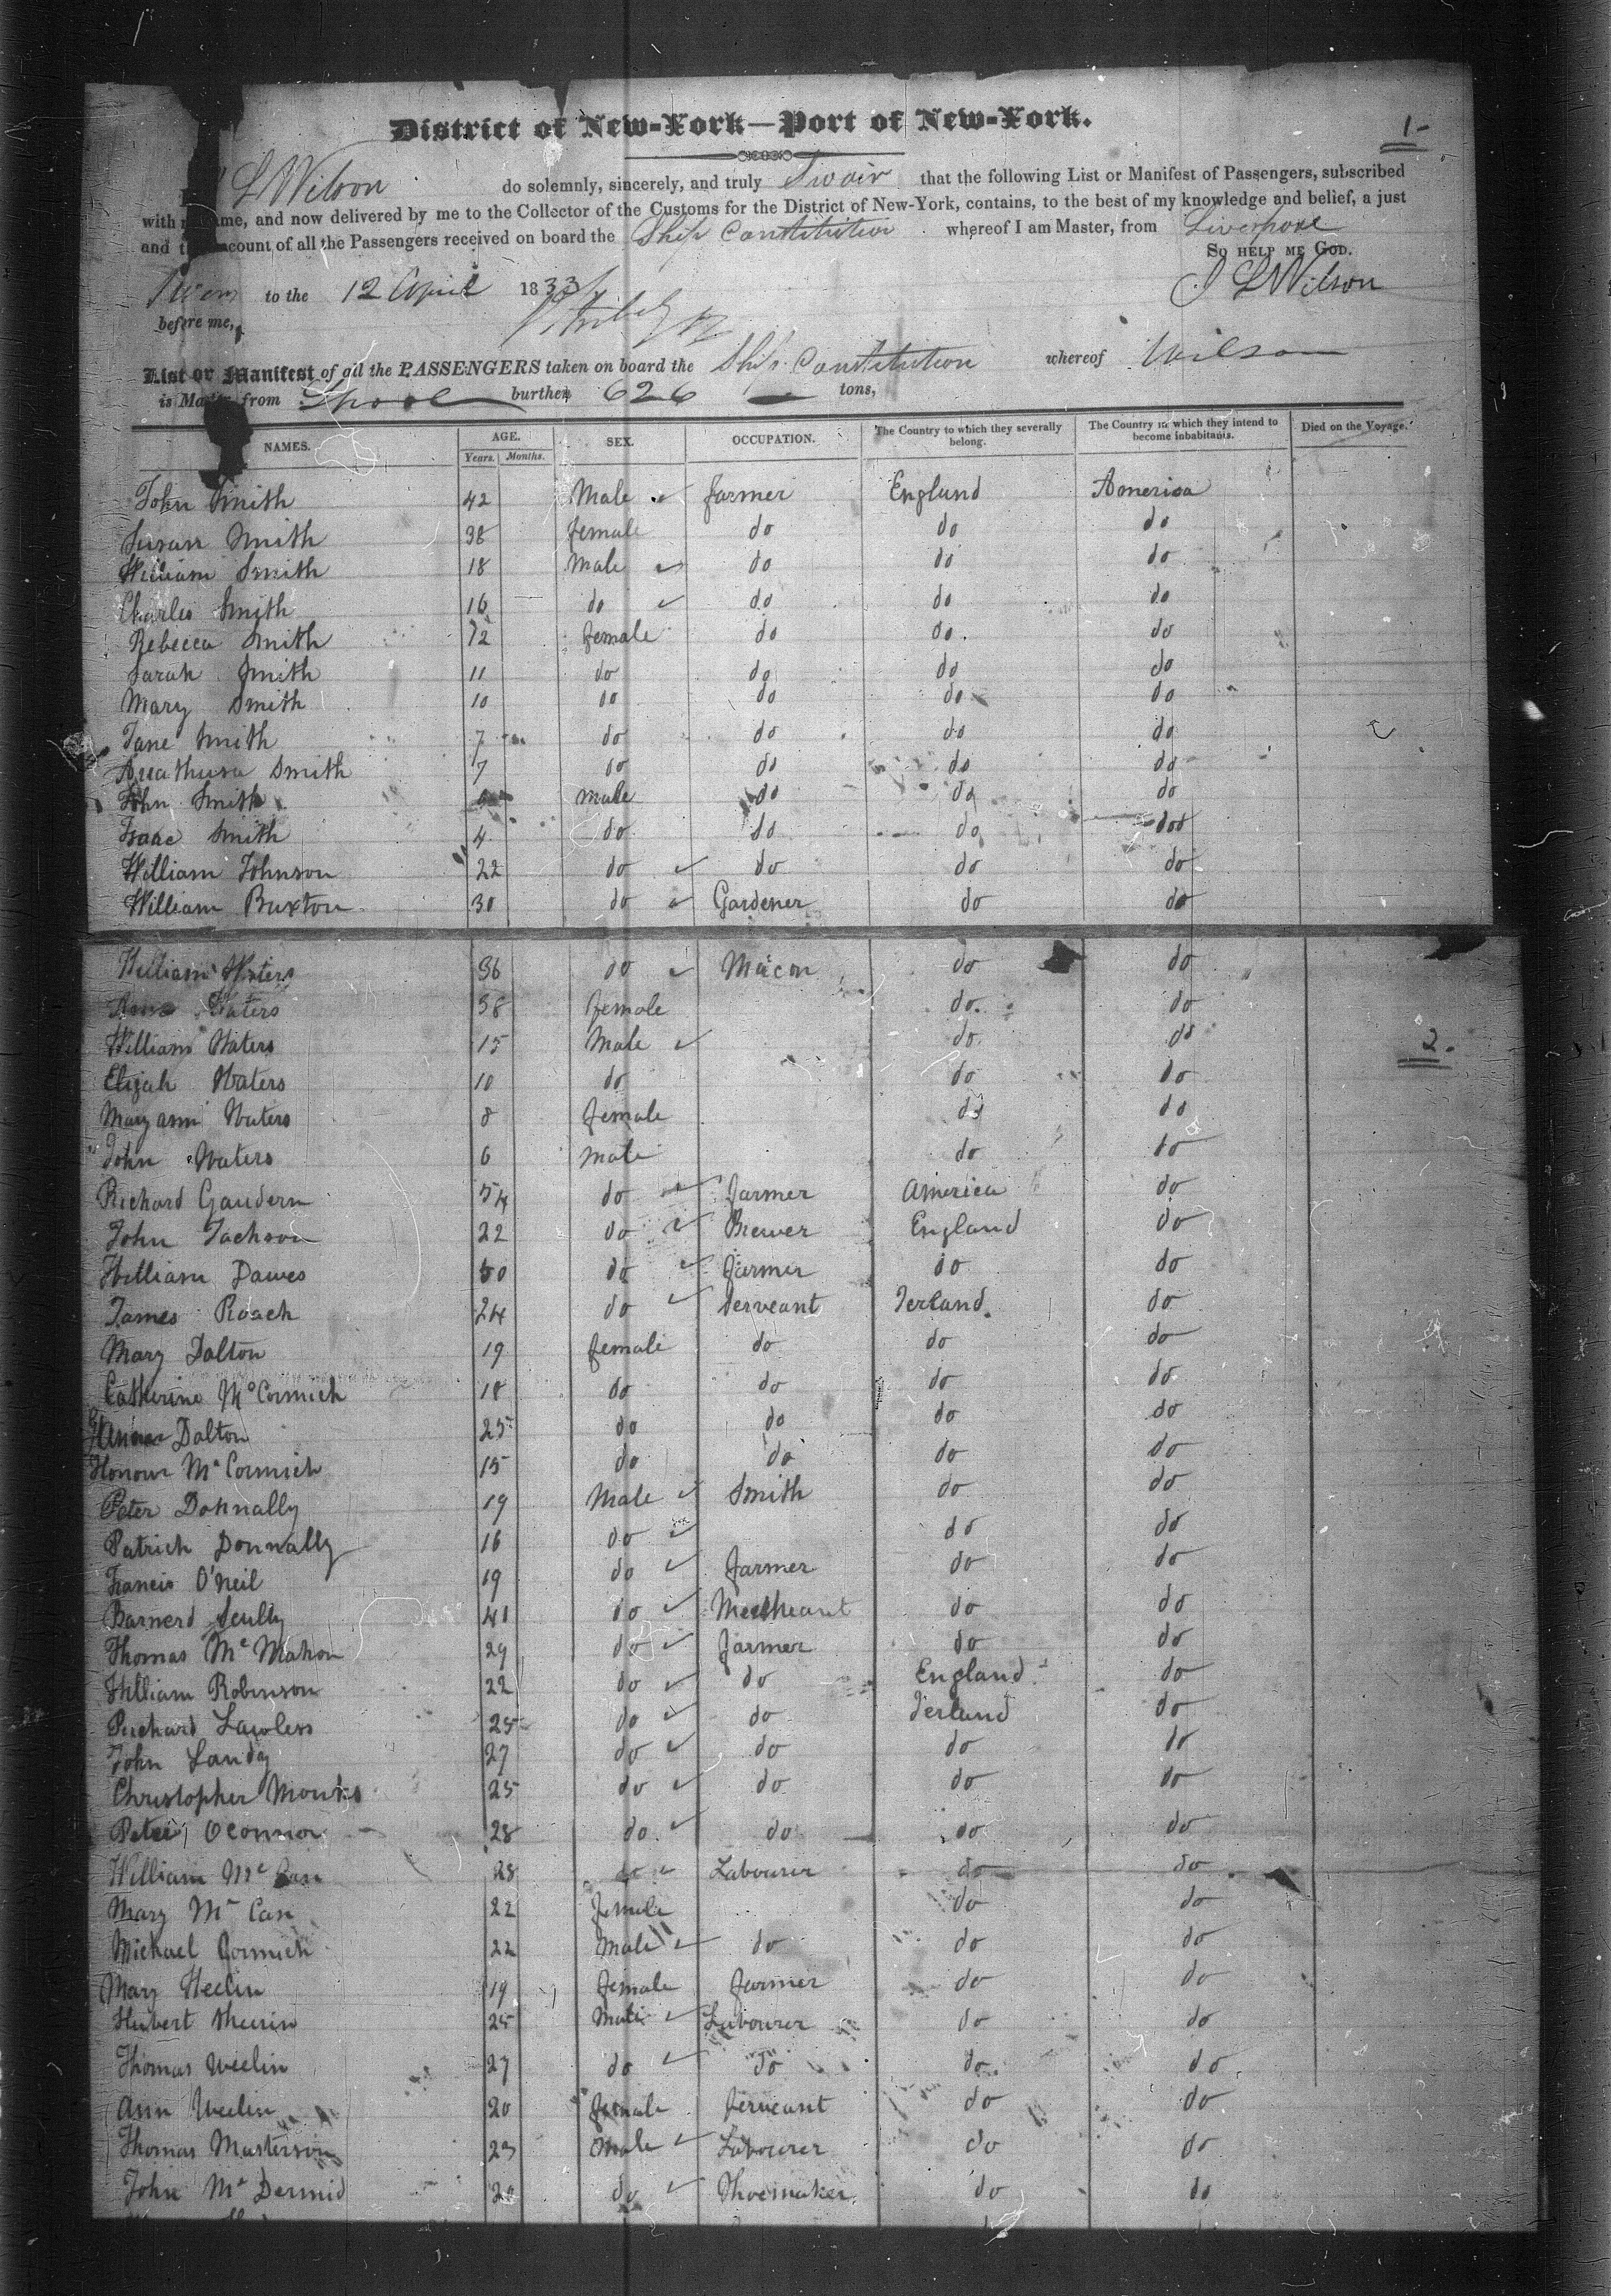 District of New-York—Port of New-York.
1-
L Wilson do solemnly, sincerely, and truly Swair that the following List or Manifest of Passengers, subscribed
with name, and now delivered by me to the Collector of the Customs for the District of New-York, contains, to the best of my knowledge and belief, a just
and account of all the Passengers received on board the Ship Constitution whereof I am Master, from Liverpool
So HELP ME GOD.
to the 12 April 1833 J L Wilson
before me,
List or Manifest of all the PASSENGERS taken on board the Ship Constitution whereof Wilson
is Master, from burthen 626 tons,
NAMES. AGE. SEX. OCCUPATION. The Country to which they severally belong. The Country in which they intend to become inhabitants. Died on the Voyage.
Years. Months.
John Smith 42 Male farmer England America
Susan Smith 38 female do do do
William Smith 18 Male do do do
Charles Smith 16 do do do do
Rebecca Smith 12 female do do do
Sarah Smith 11 do do do do
Mary Smith 10 do do do do
Jane Smith 7 do do do do
Smith 7 do do do do
John Smith male do do do
Isaac Smith 4 do do do do
William Johnson 22 do do do do
William Buxton 30 do Gardener do do
William Waters 36 do Macon do do
Ann Waters 38 female do do
2-
William Waters 15 Male do do
Elijah Waters 10 do do do
Mary ann Waters 8 female do do
John Waters 6 male do do
Richard Gaudern 54 do farmer America do
John Jackson 22 do Brewer England do
William Dawes 50 do farmer do do
James Roach 24 do Serveant Ierland do
Mary Dalton 19 female do do do
Catherine McCormick 18 do do do do
Dalton 25 do do do do
Honour McCormick 15 do do do do
Peter Donnally 19 Male Smith do do
Patrick Donnally 16 do do do
Francis O'Neil 19 do farmer do do
Barnerd Scully 41 do do do
Thomas McMahon 29 do farmer do do
William Robinson 22 do do England do
Richard Lawless 25 do do Ierland do
John Landy 27 do do do do
Christopher Monks 25 do do do do
Peter OConnor 28 do do do do
William McCan 28 do Labourer do do
Mary McCan 22 female do do
Michael Cormick 22 Male do do do
Mary Heelin 19 female farmer do do
Hubert 25 Male Labourer do do
Thomas Weelin 27 do do do do
Ann Weelin 20 female Serveant do do
Thomas Masterson 23 Male Labourer do do
John McDermid 20 do Shoemaker do do